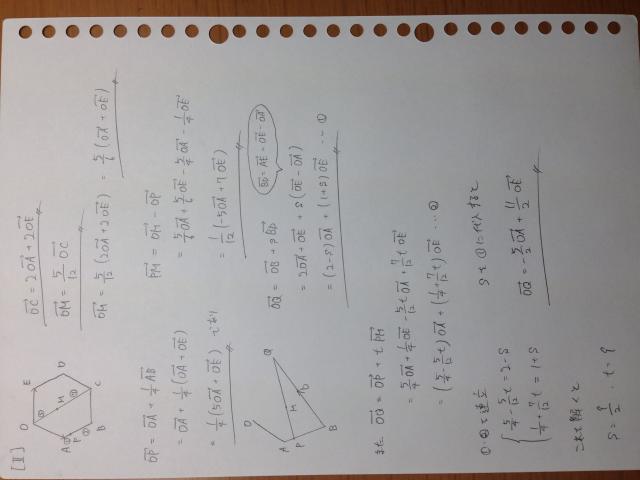 [Ⅱ]
O E D C B P A M
OC = 2OA + 2OE
OM = 5/12 OC
OM = 5/12 (2OA + 2OE) = 5/6 (OA + OE)
OP = OA + 1/4 AB
= OA + 1/4 (OA + OE)
= 1/4 (5OA + OE) であり
PM = OM - OP
= 5/6 OA + 5/6 OE - 5/4 OA - 1/4 OE
= 1/12 (-5OA + 7OE)
O A P M B D Q
BD = AE = OE - OA
OQ = OB + sBD
= 2OA + OE + s(OE - OA)
= (2-s)OA + (1+s)OE … ①
また OQ = OP + tPM
= 5/4 OA + 1/4 OE - 5/12 tOA + 7/12 tOE
= (5/4 - 5/12 t)OA + (1/4 + 7/12 t)OE … ②
①・②を連立
5/4 - 5/12 t = 2 - s
1/4 + 7/12 t = 1 + s
これを解くと
s = 9/2 , t = 9
sを①に代入すると
OQ = -5/2 OA + 11/2 OE